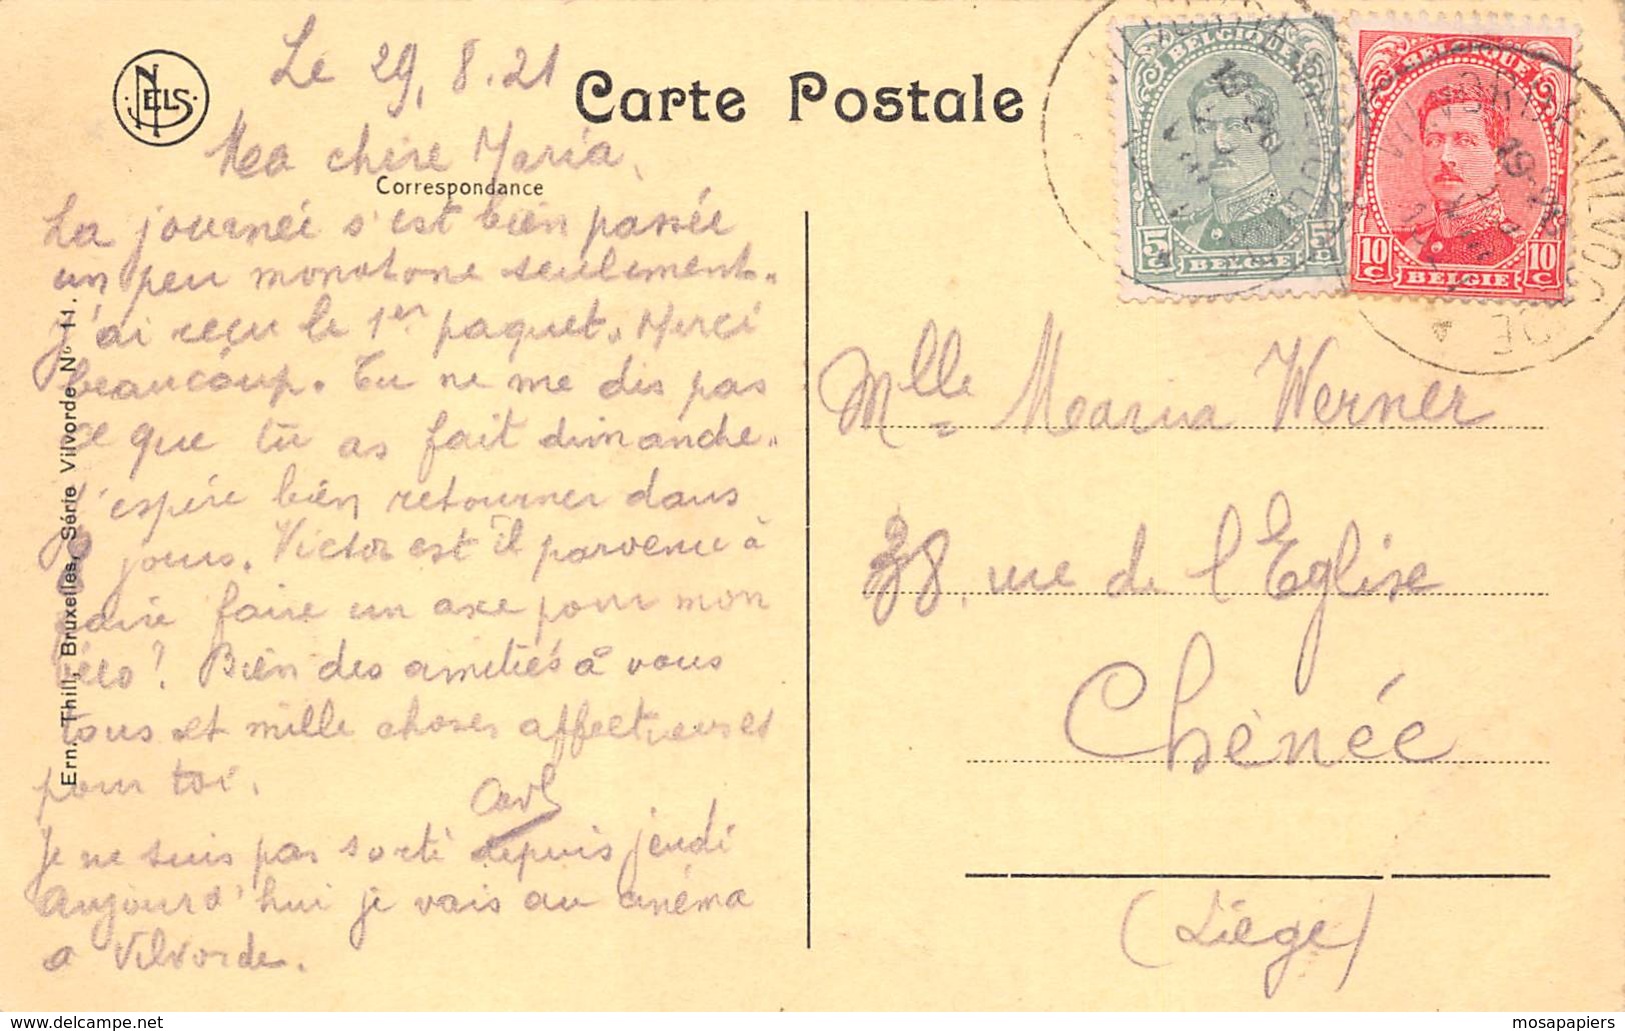 NELS
Le 29.8.21
Carte Postale
Ma chère Maria,
Correspondance
La journée s'est bien passée
un peu monotone seulement.
J'ai reçu le 1er paquet. Merci
beaucoup. Tu ne me dis pas
ce que tu as fait dimanche.
J'espère bien retourner dans
8 jours. Victor est il parvenu à
faire faire un axe pour mon
vélo? Bien des amitiés à vous
tous et mille choses affectueuses
pour toi.
Je ne suis pas sorti depuis jeudi
Aujourd'hui je vais au cinéma
a Vilvorde.
Ern. Thill, Bruxelles, Série Vilvorde No 11.
BELGIQUE
5c 5c
BELGIË
BELGIQUE
10c 10c
BELGIË
VILVORDE-VILVOORDE
Mlle Maria Werner
38, rue de l'Eglise
Chênée
(Liège)
mosapapiers